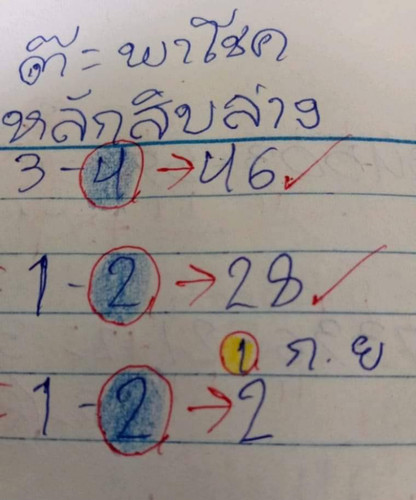 ต๊ะ = พาโชค
หลักสิบล่าง
3 - 4 → 46 ✓
1 - 2 → 28 ✓
1 ก.ย
1 - 2 → 2